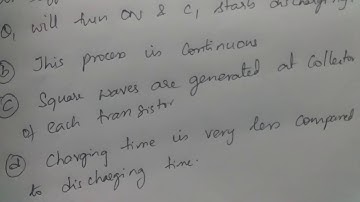 Q, will turn ON & C, starts discharging.
(b) This process is continuous
(c) Square waves are generated at collector
of each transistor
(d) Charging time is very less compared
to discharging time.